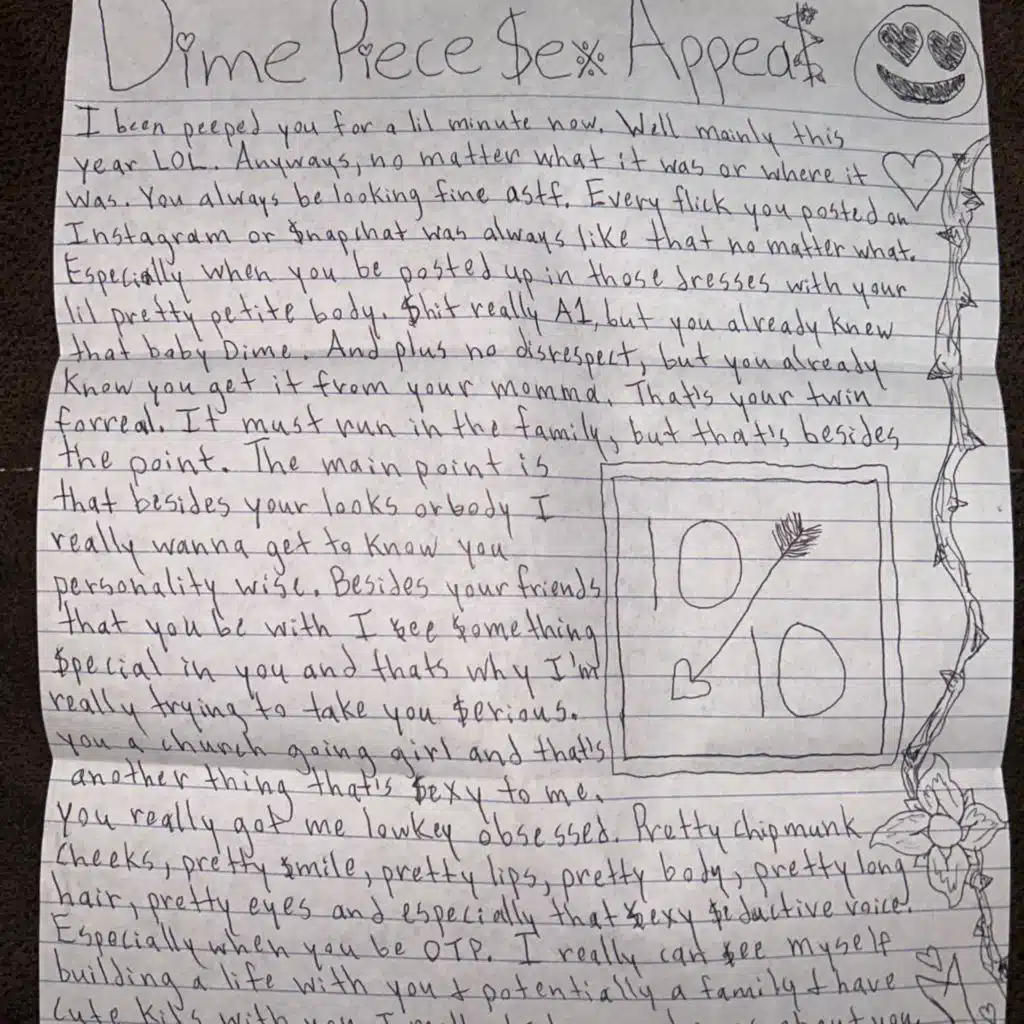 Dime Piece $ex Appea$
I been peeped you for a lil minute now. Well mainly this
year LOL. Anyways, no matter what it was or where it
was. You always be looking fine astf. Every flick you posted on
Instagram or $napchat was always like that no matter what.
Especially when you be posted up in those dresses with your
lil pretty petite body. $hit really A1, but you already knew
that baby Dime. And plus no disrespect, but you already
know you get it from your momma. That's your twin
forreal. It must run in the family, but that's besides
the point. The main point is
that besides your looks or body I
really wanna get to know you
personality wise. Besides your friends
that you be with I $ee $omething
$pecial in you and thats why I'm
really trying to take you $erious.
you a church going girl and that's
another thing that's $exy to me.
10
10
You really got me lowkey obsessed. Pretty chipmunk
cheeks, pretty $mile, pretty lips, pretty body, pretty long
hair, pretty eyes and especially that $exy $eductive voice.
Especially when you be OTP. I really can $ee myself
building a life with you & potentially a family & have
cute kids with you. I